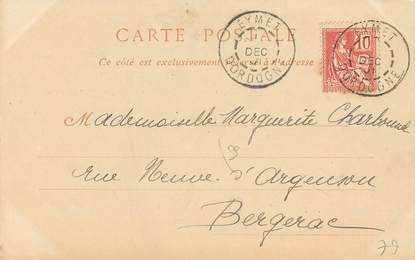 CARTE POSTALE
Ce côté est exclusivement réservé à l'adresse
EYMET
DEC
DORDOGNE
10
EYMET
DEC
DORDOGNE
Mademoiselle Marguerite
9
rue Neuve d'Argenson
Bergerac
79